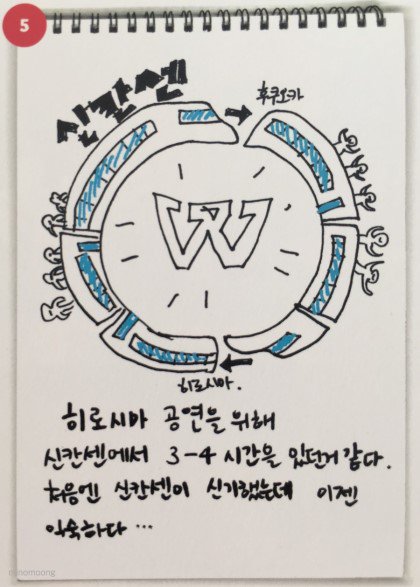 5
신칸센
후쿠오카
W
히로시마.
히로시마 공연을 위해
신칸센에서 3-4 시간을 있던거 같다.
처음엔 신칸센이 신기했는데 이젠
익숙하다...
ninomoong